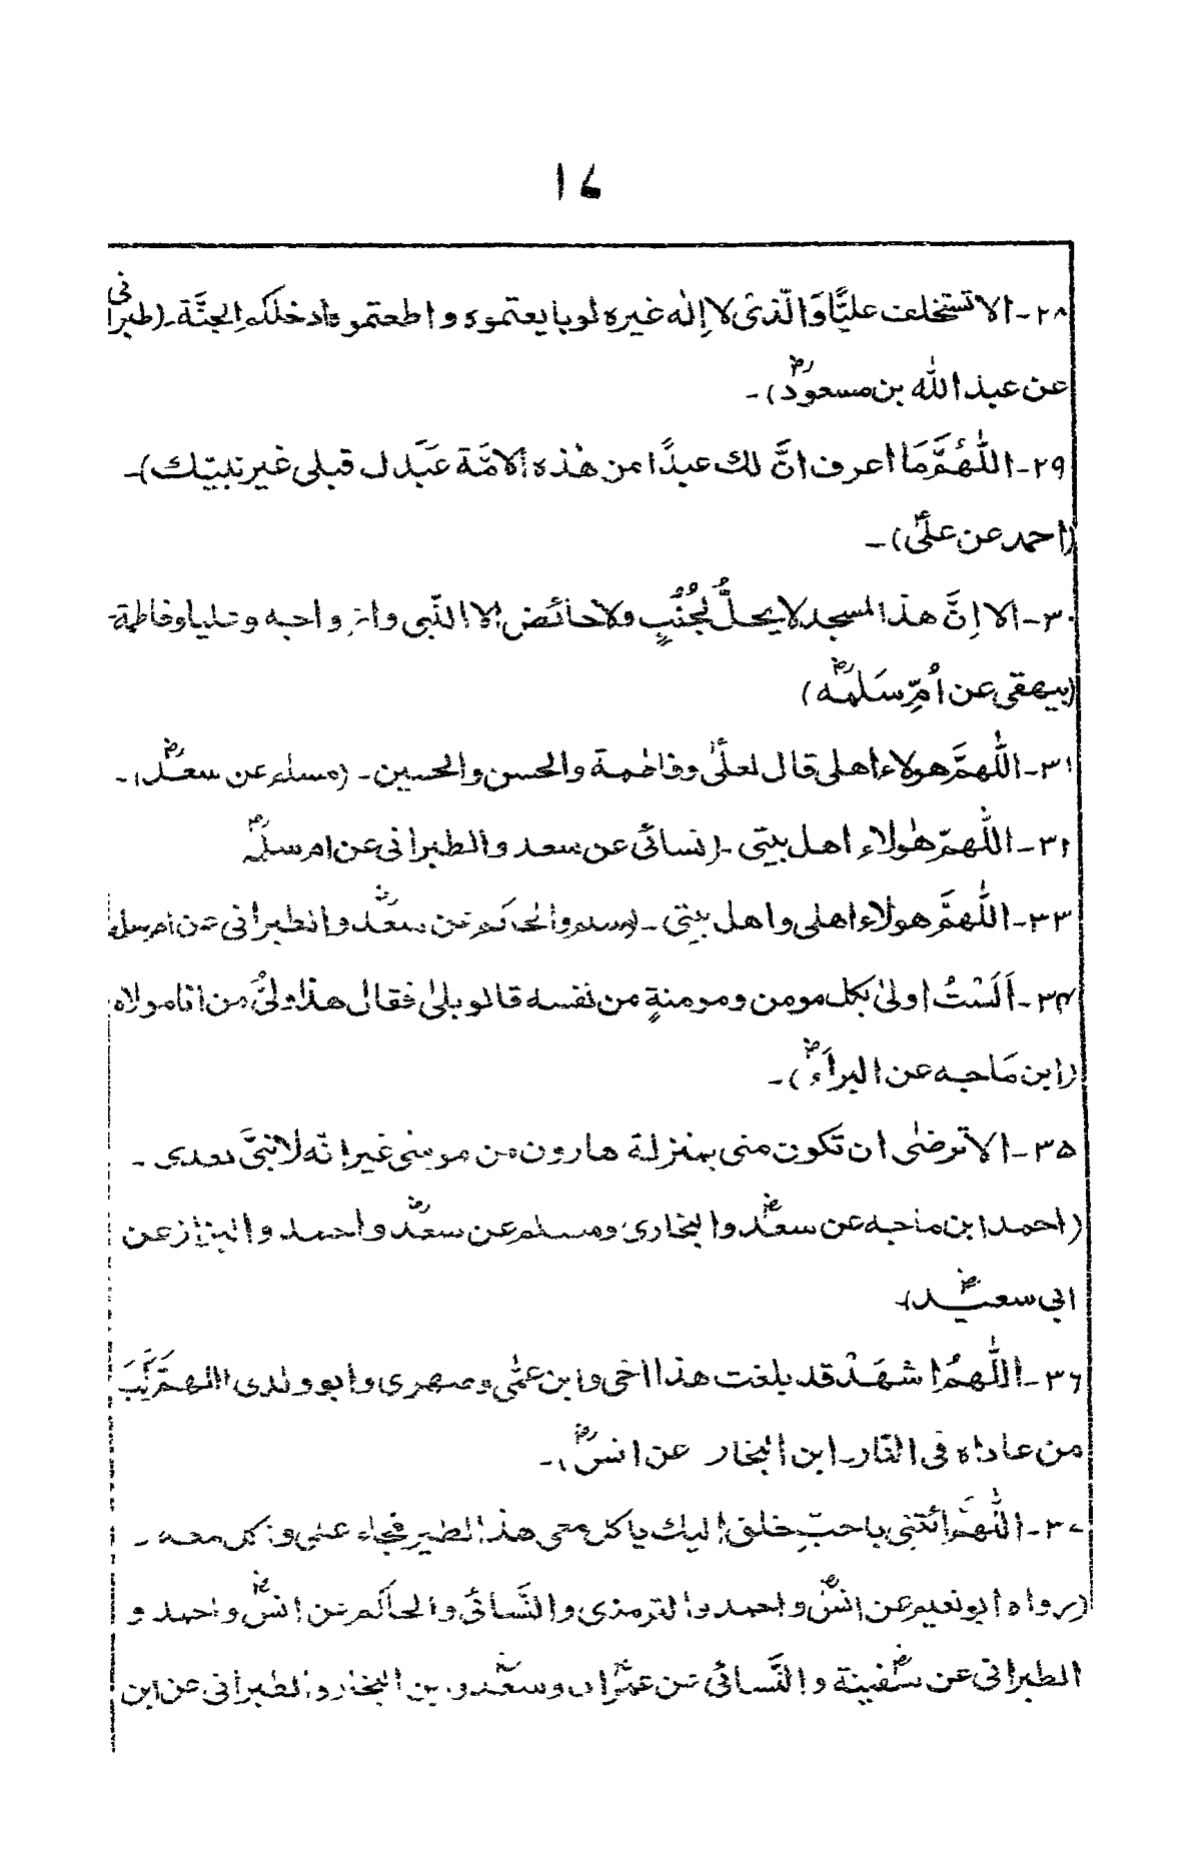 ۱۷
۲۸-الا تستخلف علیًّا وَالّذیْ لا اِلٰه غیره لو بایعتموه واطعتموه ادخلکم الجنَّة-(طبرانی
عن عبد الله بن مسعودؓ)-
۲۹-اللّٰهُمَّ مَا اعرف انَّ لك عبدًا من هٰذه الامَّة عَبَدَك قبلی غیر نبیّك)-
(احمد عن علیؑ)-
۳۰-الا اِنَّ هذا المسجد لا یحلُّ لِجُنُبٍ ولا حائض الا النّبی وازواجه وعلیا وفاطمة
(بیهقی عن اُمِّ سَلمهؓ)
۳۱-اللّٰهمَّ هولاء اهلی قال لعلیؑ وفاطمة والحسن والحسین-(مسلم عن سعدؓ)-
۳۲-اللّٰهمّ هٰولاء اهل بیتی-(نسائی عن سعد والطبرانی عن ام سلمهؓ
۳۳-اللّٰهمَّ هولاء اهلی واهل بیتی-(مسلم والحاکم عن سعدؓ والطبرانی عن ام سلمه
۳۴-اَلَسْتُ اولیٰ بکل مومن ومومنةٍ من نفسه قالو بلیٰ فقال هذا ولیُّ من انا مولاه
(ابن مَاجه عن البراءؓ)-
۳۵-الا ترضٰی ان تکون منی بمنزلة هارون من موسٰی غیر انّه لا نبیَّ بعدی-
(احمد ابن ماجه عن سعدؓ والبخاری ومسلم عن سعدؓ واحمد والبزاز عن
ابی سعیدؓ)-
۳۶-اللّٰهمُ اشهَدْ قد بلغت هذا اخی وابن عمّی وصهری وابو ولدی اللهمَّ کَبِّ
من عاداه فی النّار-ابن النجار عن انسؓ)-
۳۷-اللّٰهمَّ ائتنی باحبّ خلقِ الیك یاکل معی هذا الطیر فجاء علی واکل معه-
(رواه ابو نعیم عن انسؓ واحمد والترمذی والنَّسائی والحاکم عن انسؓ واحمد و
الطبرانی عن سفینةؓ والنَّسائی عن عمرانؓ وسعدؓ وابن النجار والطبرانی عن ابن